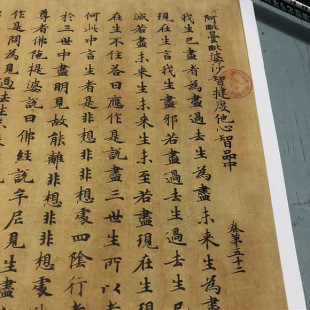 阿毗曇毗婆沙智揵度他心智品中
卷第五十二
我生已盡者為盡過去生為盡未來生為盡
現在生言我生盡耶若盡過去生過去生已
滅若盡未來生未至若盡現在生現
在生不住答曰應作是說盡三世生所以者
何此中言生者是非想非非想處四陰行者
於三世中盡明見故能離非想非非想處
尊者佛陁提婆說曰佛經說牟尼見生盡
作是問為見過去生